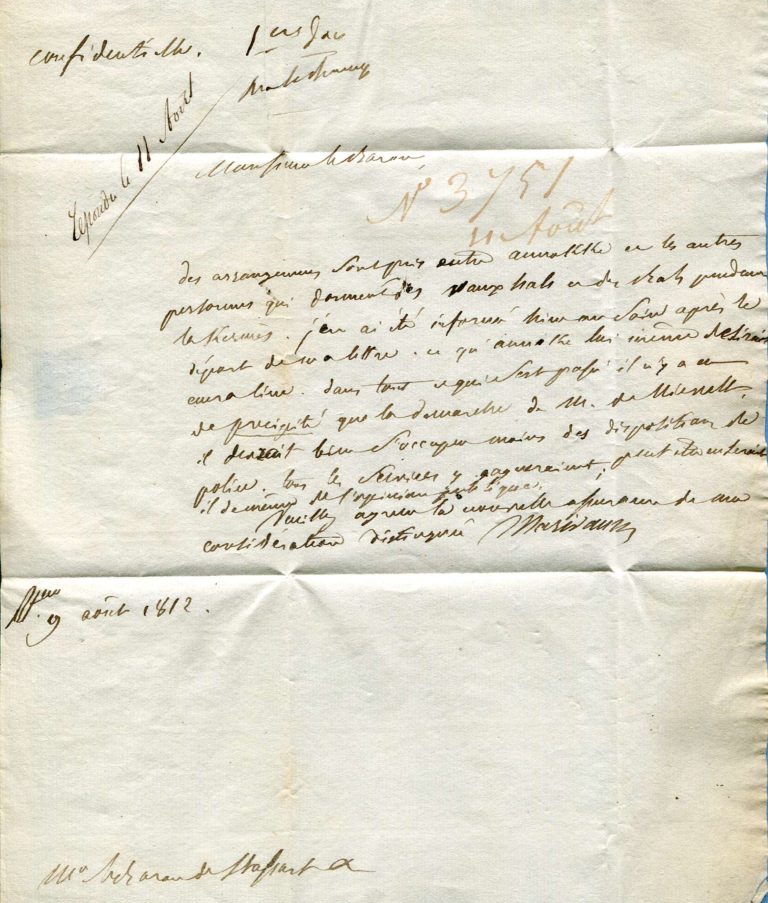 confidentielle.
Répondu le 11 Août
Monsieur le Baron,
N° 3751
11 Août
des arrangemens sont pris entre et les autres
personnes qui donnent des vauxhals et des bals pendant
la Kermès. j'en ai été informé hier au soir après le
départ de ma lettre. ce lui même désirait
aura lieu. dans tout ce qui s'est passé il n'y a eu
de précipité que la démarche de M. de
il devrait bien s'occuper moins des dispositions de
police. tous les services y gagneraient,
il de même de l'opinion publique.
Veuillez agréer la nouvelle assurance de ma
considération distinguée
9 août 1812.
Mr le Baron de Stassart &